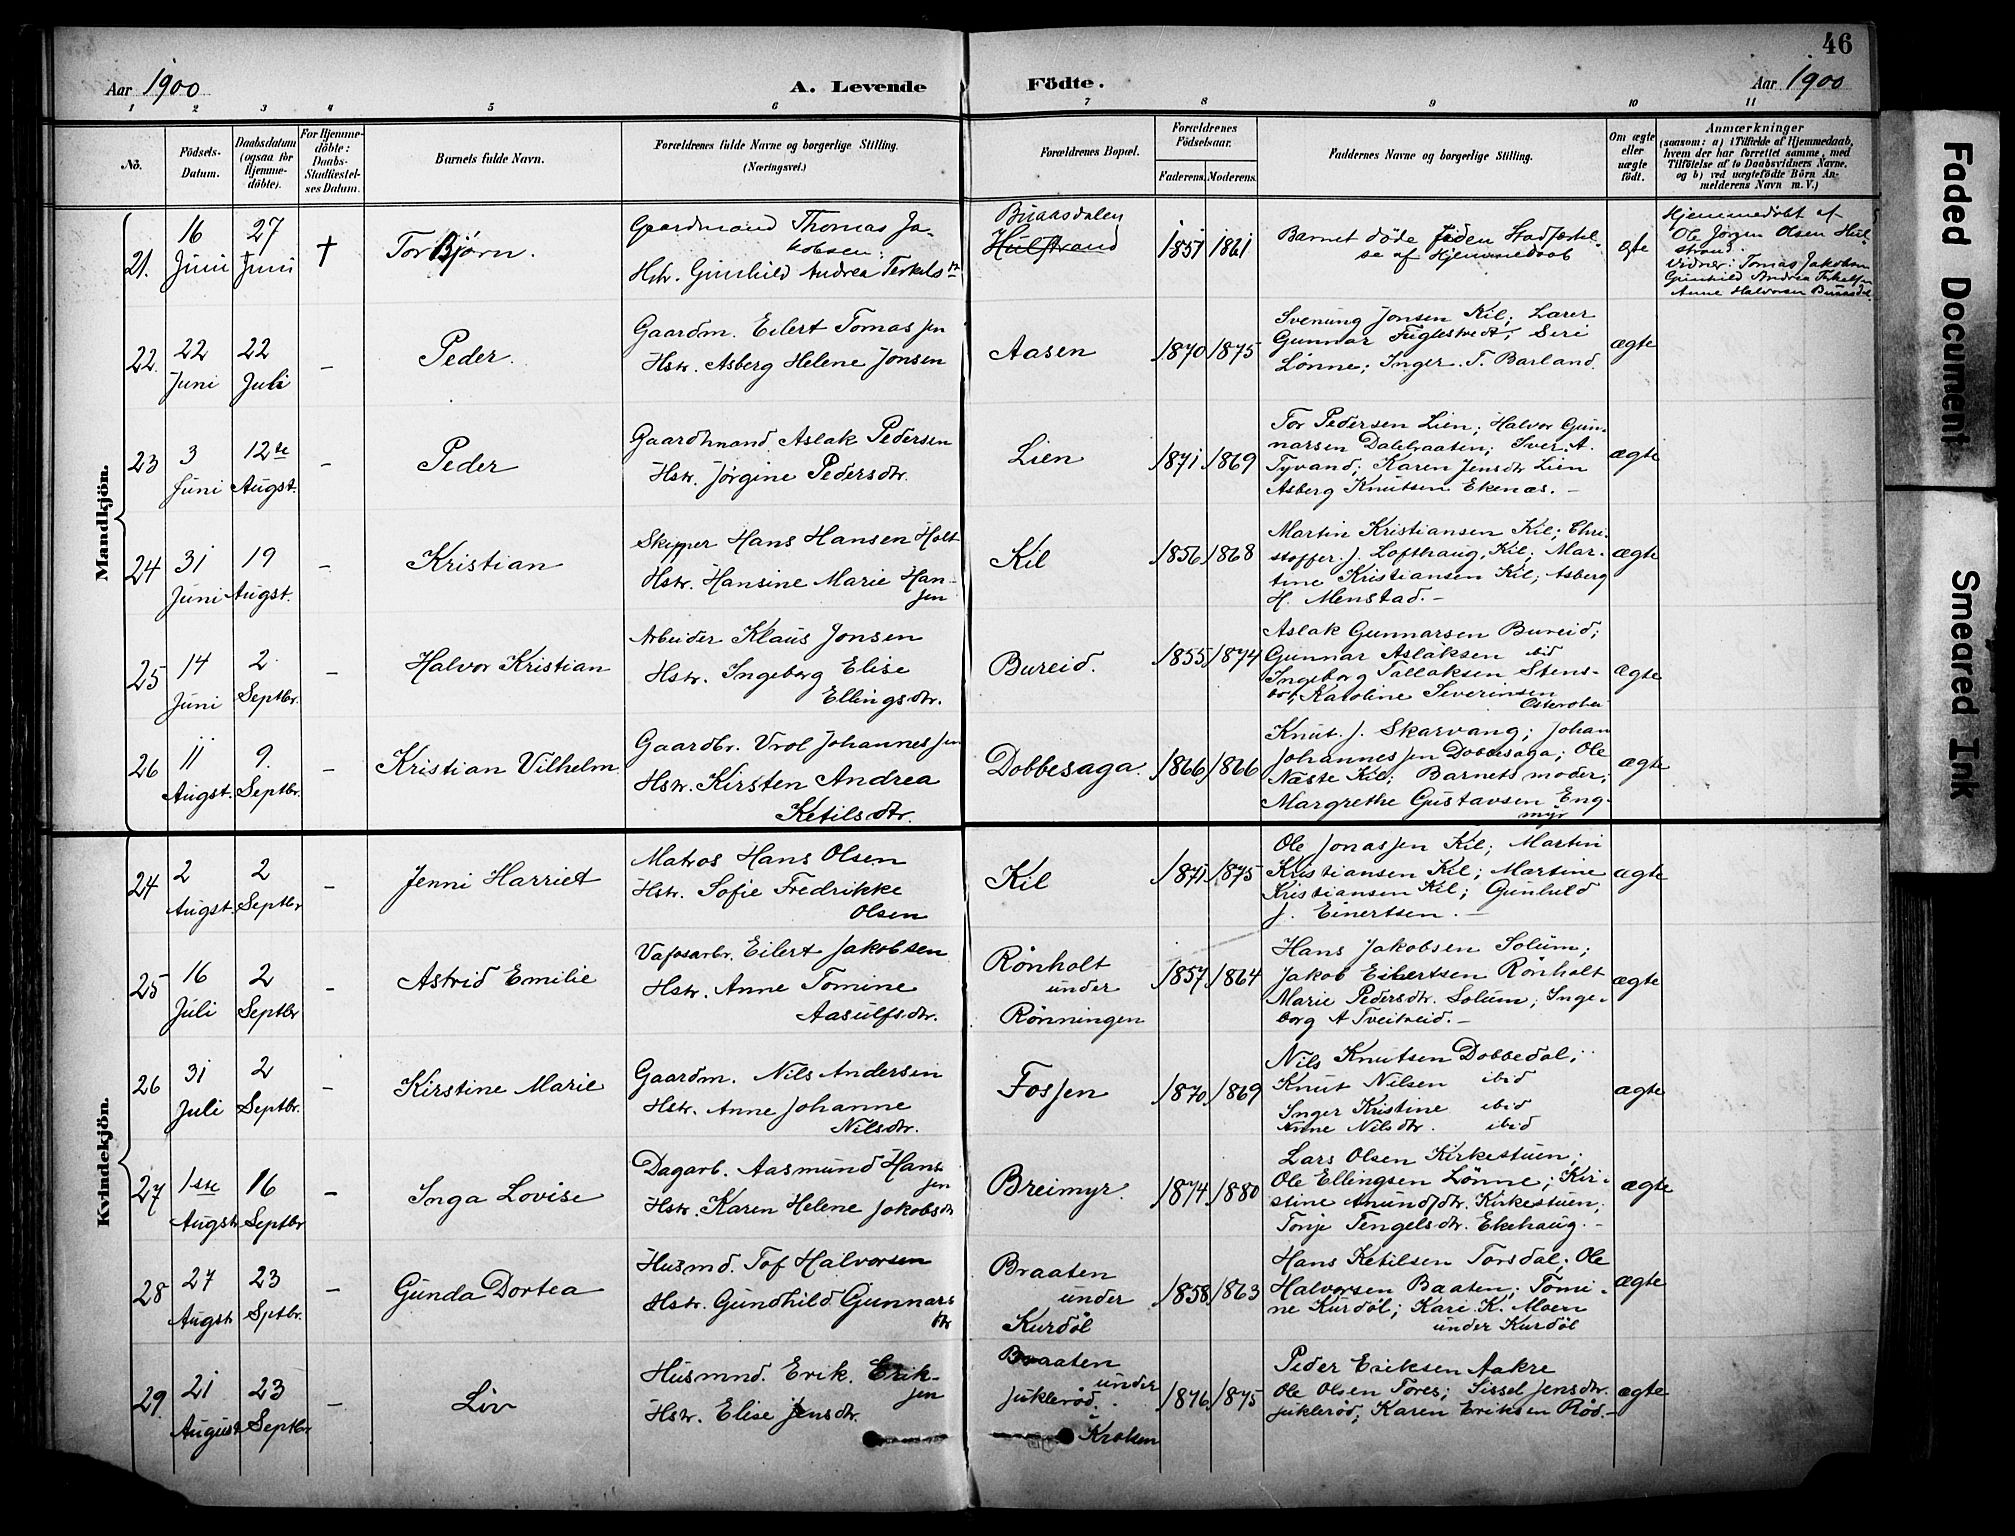 46
Aar 1900
A. Levende Födte.
Aar 1900
1 2 3 4 5 6 7 8 9 10 11
No.
Födsels-
Datum.
Daabsdatum
(ogsaa for
Hjemme-
döbte).
For Hjemme-
döbte:
Daabs-
Stadfæstel-
ses Datum.
Barnets fulde Navn.
Forældrenes fulde Navne og borgerlige Stilling.
(Næringsvei.)
Forældrenes Bopæl.
Forældrenes
Födselsaar.
Faderens. Moderens.
Faddernes Navne og borgerlige Stilling.
Om ægte
eller
uægte
födt.
Anmærkninger
(saasom: a) i Tilfælde af Hjemmedaab,
hvem der har forrettet samme, med
Tilföielse af to Daabsvidners Navne.
og b) ved uægtefödte Börn An-
melderens Navn m. V.)
Mandkjön.
21. 16 Juni 27 Juni † Torbjørn.
Gaardmand Thomas Ja-
kobsen.
Hstr. Gunhild Andrea Terkels
Buaasdalen
Hulstrand
1851 1861
Barnet døde føden Stadfæstel-
se af Hjemmedaab
gte
Hjemmedøbt af
Ole Jørgen Olsen Hul-
strand.
Vidner: Tomas Jakobsen
Gunhild Andrea Terkelsen
Anne Halvorsen Buaasdal
22. 22 Juni 22 Juli – Peder.
Gaardm. Eilert Tomassen
Hstr. Asberg Helene Jonsen
Aasen
1870 1875
Svenung Jonsen Kil; Lærer
Gunnar Fuglestvedt; Siri
Lønne; Inger T. Barland.
ægte
23 3 Juni 12te Augst. – Peder
Gaardmand Aslak Pedersen
Hstr. Jørgine Pedersdtr.
Lien
1871 1869
Tor Pedersen Lien; Halvor Gun-
narsen Dalebraaten; Iver A.
Tyvand; Karen Jensdtr Lien
Asberg Knutsen Ekenæs. –
ægte
24 31 Juni 19 Augst. – Kristian
Skipper Hans Hansen Holt
Hstr. Hansine Marie Han-
sen
Kil
1856 1868
Martin Kristiansen Kil; Chri-
stoffer J. Lofthaug, Kil; Mar-
tine Kristiansen Kil; Asberg
H. Menstad. –
ægte
25 14 Juni 2 Septbr. – Halvor Kristian
Arbeider Klaus Jonsen
Hstr. Ingeborg Elise
Ellingsdtr.
Bureid.
1855 1874
Aslak Gunnarsen Bureid;
Gunnar Aslaksen ibid
Ingeborg Tallaksen Stens-
bot; Karoline Severinsen
ægte
26 11 Augst. 9. Septbr. – Kristian Vilhelm.
Gaardbr. Vrol Johannessen
Hstr. Kirsten Andrea
Ketilsdtr.
Dobbesaga.
1866 1866
Knut J. Skarvang; Johan
Johannessen Dobbesaga; Ole
Næste Kil; Barnets moder;
Margrethe Gustavsen Eng-
myr
ægte
Kvindekjön.
24 2 Augst. 2 Septbr – Jenni Harriet
Matros Hans Olsen
Hstr. Sofie Fredrikke
Olsen
Kil
1871 1875
Ole Jonassen Kil; Martin
Kristiansen Kil; Martine
Kristiansen Kil; Gunhild
J. Einertsen. –
ægte
25 16 Juli 2 Septbr – Astrid Emilie
Vafosarbr. Eilert Jakobsen
Hstr. Anne Tomine
Aasulfsdtr.
Rønholt
under
Rønningen
1857 1864
Hans Jakobsen Solum;
Jakob Eilertsen Rønholt
Marie Pedersdtr. Solum; Inge-
borg A Tveiteid. –
ægte
26 31 Juli 2 Septbr. – Kirstine Marie
Gaardm. Nils Andersen
Hstr. Anne Johanne
Nilsdtr.
Fossen
1870 1869
Nils Knutsen Dobbedal;
Knut Nilsen ibid
Inger Kristine ibid
Anne Nilsdtr. ibid
ægte
27 1ste Augst 16 Septbr – Inga Lovise
Dagarb. Aasmund Han-
sen
Hstr. Karen Helene Jakobsdtr
Breimyr.
1874 1880
Lars Olsen Kirkestuen;
Ole Ellingsen Lønne; Kir-
stine Anundsdtr. Kirkestuen;
Tonje Tengelsdtr. Ekehaug. –
ægte
28 27 Augst 23 Sptbr. – Gunda Dortea
Husmd. Tof Halvorsen
Hstr. Gundhild Gunnars
dtr
Braaten
under
Kurdøl
1858 1863
Hans Ketilsen Torsdal; Ole
Halvorsen Baaten; Tomi-
ne Kurdøl; Kari K. Moen
under Kurdøl
ægte
29. 21 August 23 Septbr – Liv
Husmnd. Erik Erik-
sen
Hstr. Elise Jensdtr.
Braaten
under
Juklerød.
Kroken
1876 1875
Peder Eriksen Aakre
Ole Olsen Tores; Sissel Jensdtr.
Juklerød; Karen Eriksen Rød. –
ægte
Faded Document
Smeared Ink